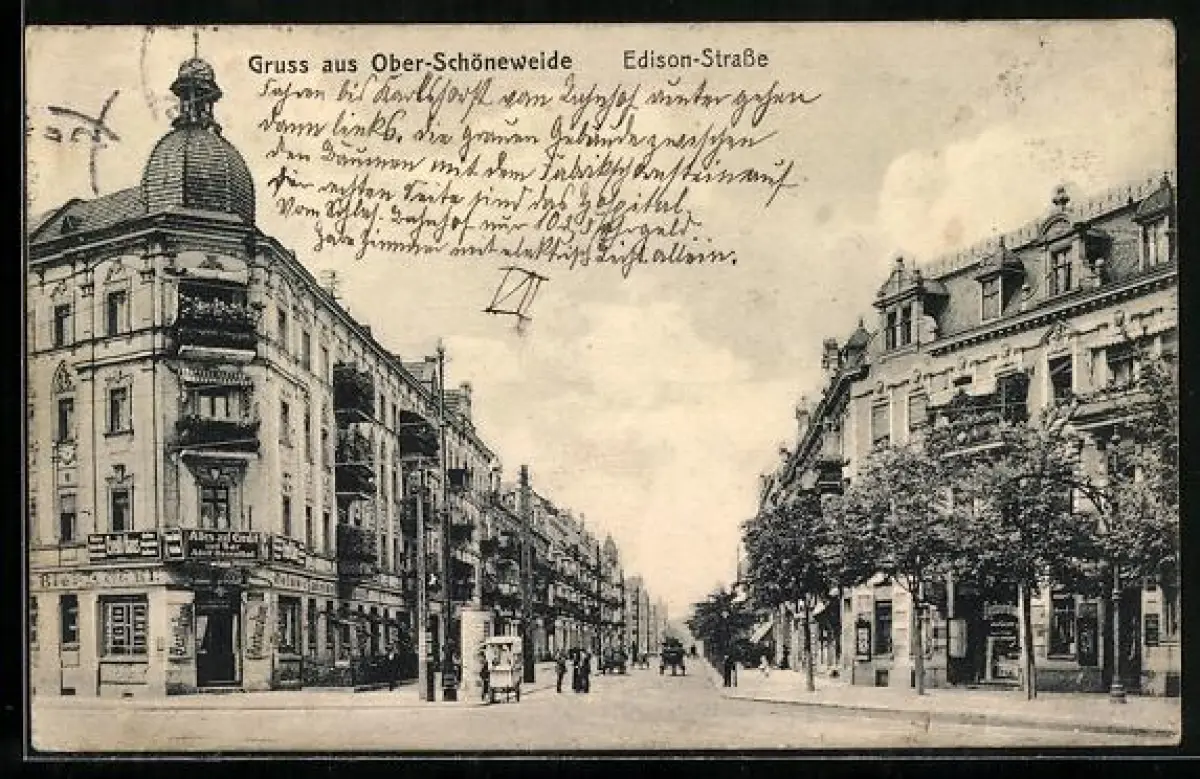 Gruss aus Ober-Schöneweide Edison-Straße
Fahren bis Karlshorst vom Bahnhof runter gehen
dann links. die grauen Gebäude zwischen
den Bäumen mit dem Fabrikschornstein auf
der rechten Seite sind das Hospital.
Vom Schles. Bahnhof nur 10 d Fahrgeld
Habe Zimmer mit elektrisch Licht allein.
Alles auf Credit